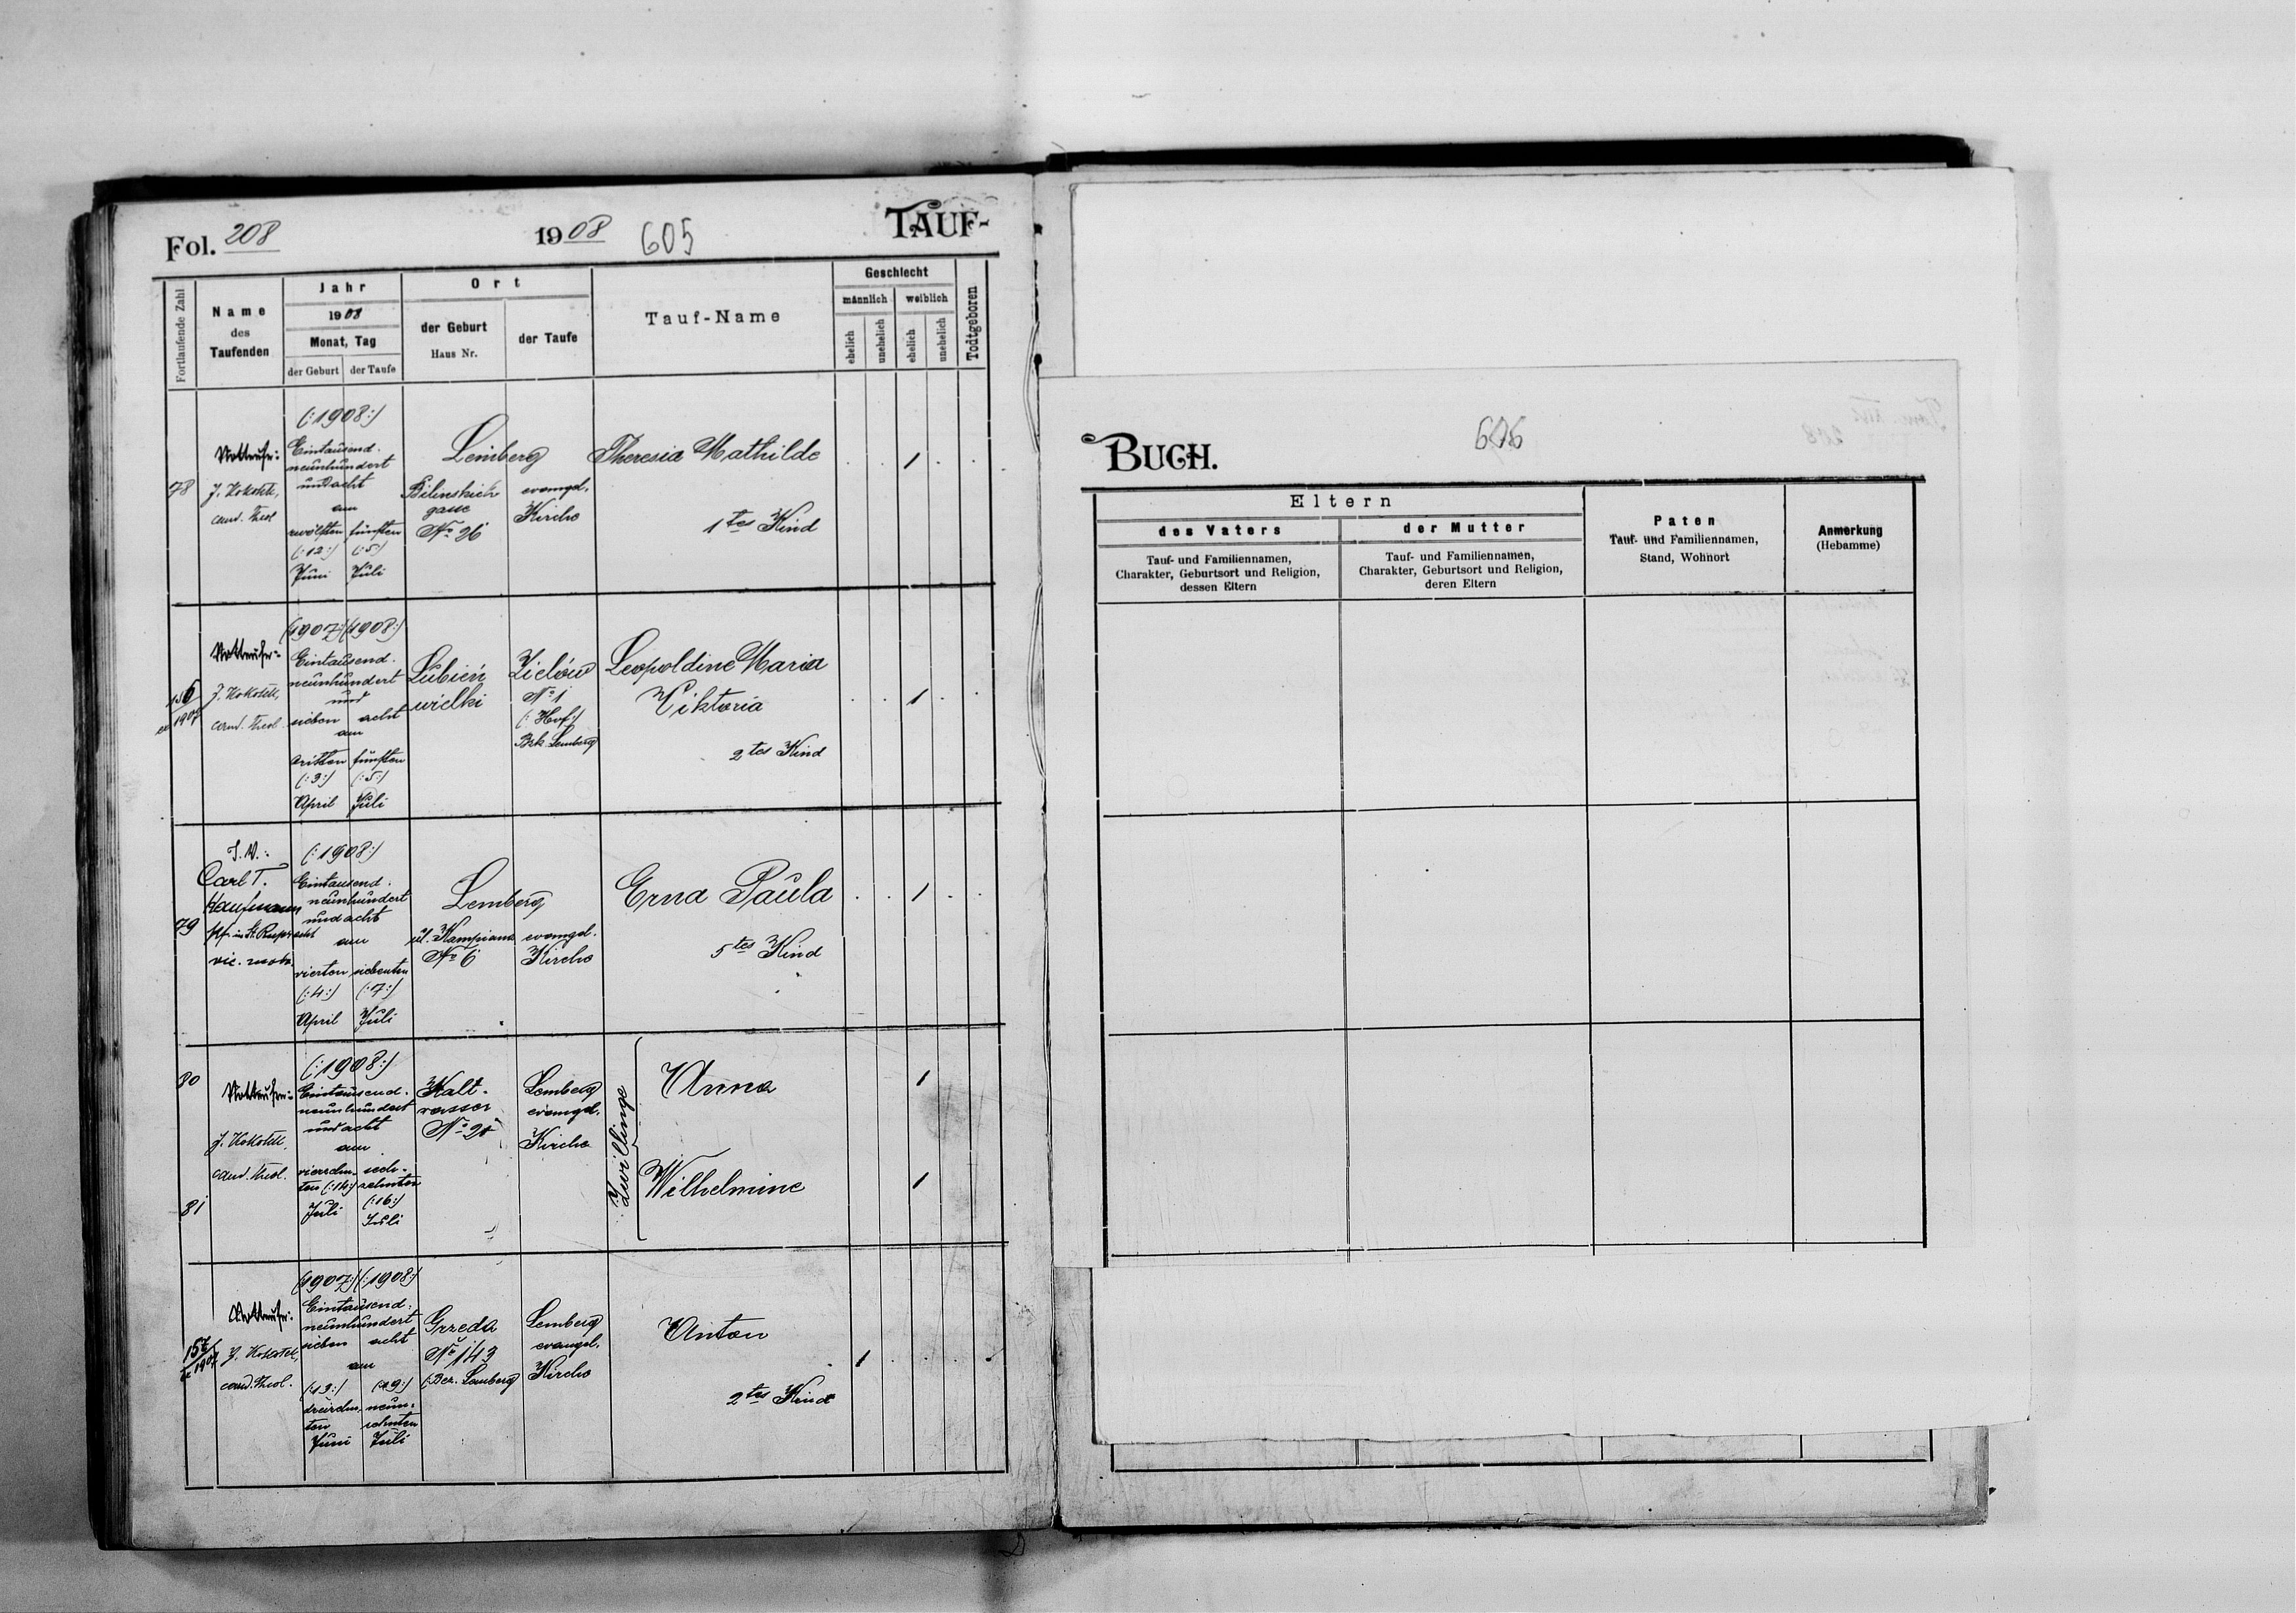 Fol. 208
1908
605
TAUF-
Fortlaufende Zahl
Name
des
Taufenden
Jahr
1908
Monat, Tag
der Geburt
der Taufe
Ort
der Geburt
Haus Nr.
der Taufe
Tauf-Name
Geschlecht
männlich
weiblich
ehelich
unehelich
ehelich
unehelich
Todtgeboren
78
J. Kokotek,
cand. theol
(:1908:)
Eintausend-
neunhundert
und acht
am
zwölften fünften
(:12:) (:5:)
Juni Juli
Lemberg
gasse
No 26
evangel.
Kirche
Theresia Mathilde
1tes Kind
156
ex 1907
J. Kokotek,
cand. theol.
(1907:) (1908:)
Eintausend-
neunhundert
und
sieben acht
am
dritten fünften
(:3:) (:5:)
April Juli
Lubień
wielki
No 1
(:Hof:)
Bzk. Lemberg
Leopoldine Maria
Viktoria
2tes Kind
79
I. V.:
Carl T.
Kaufmann
(:1908:)
Eintausend-
neunhundert
und acht
am
vierten siebenten
(:4:) (:7:)
April Juli
Lemberg
No 6
evangel.
Kirche
Erna Paula
5tes Kind
80
81
J. Kokotek,
cand. theol.
(:1908:)
Eintausend-
neunhundert
und acht
am
vierzehn- sech-
ten (:14:) zehnten
Juli (:16:)
Juli
Kalt-
wasser
Lemberg
evangel.
Kirche
Zwillinge
Anna
Wilhelmine
157
ex 1907
J. Kokotek,
cand. theol.
(1907:) (:1908:)
Eintausend-
neunhundert
sieben acht
am
(:13:) (:19:)
dreizehn- neun-
ten zehnten
Juni Juli
Grzeda
No 143
(:Bez. Lemberg
Lemberg
evangel.
Kirche
Anton
2tes Kind
BUCH.
606
Eltern
des Vaters
Tauf- und Familiennamen,
Charakter, Geburtsort und Religion,
dessen Eltern
der Mutter
Tauf- und Familiennamen,
Charakter, Geburtsort und Religion,
deren Eltern
Paten
Tauf- und Familiennamen,
Stand, Wohnort
Anmerkung
(Hebamme)